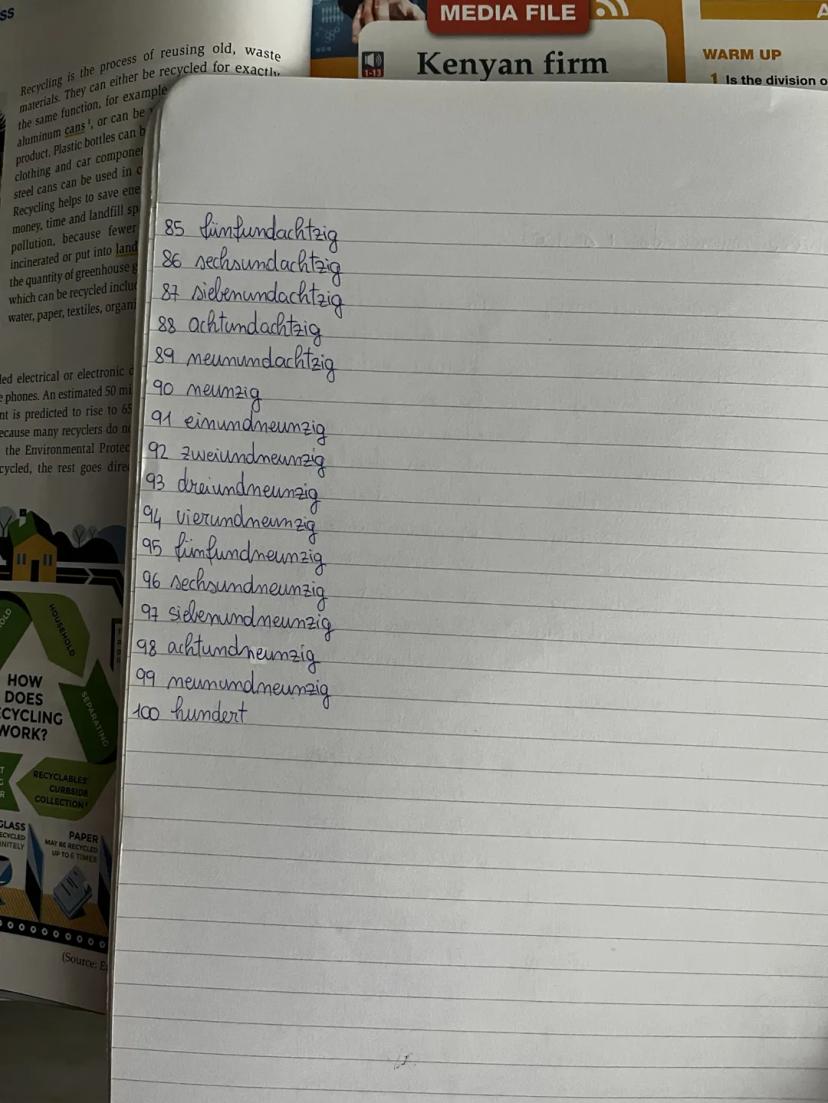 ss
Recycling is the process of reusing old, waste
materials. They can either be recycled for exactly
the same function, for example
aluminum cans¹, or can be
product. Plastic bottles can b
clothing and car compone
steel cans can be used in c
Recycling helps to save ene
money, time and landfill sp
pollution, because fewer
incinerated or put into land
the quantity of greenhouse g
which can be recycled inclu
water, paper, textiles, organi
led electrical or electronic d
e phones. An estimated 50 mi
nt is predicted to rise to 65
ecause many recyclers do n
the Environmental Protec
cycled, the rest goes dire
HOUSEHOLD
SEPARATING
HOW
DOES
CYCLING
WORK?
RECYCLABLES'
CURBSIDE
COLLECTION
GLASS
ECYCLED
NITELY
PAPER
MAY BE RECYCLED
UP TO 6 TIMES
(Source: E
MEDIA FILE
1-13
Kenyan firm
WARM UP
1 Is the division o
85 fünfundachtzig
86 sechsundachtzig
87 siebenundachtzig
88 achtundachtzig
89 neunundachtzig
90 neunzig
91 einundneunzig
92 zweiundneunzig
93 dreiundneunzig
94 vierundneunzig
95 fünfundneunzig
96 sechsundneunzig
97 siebenundneunzig
98 achtundneunzig
99 neunundneunzig
100 hundert